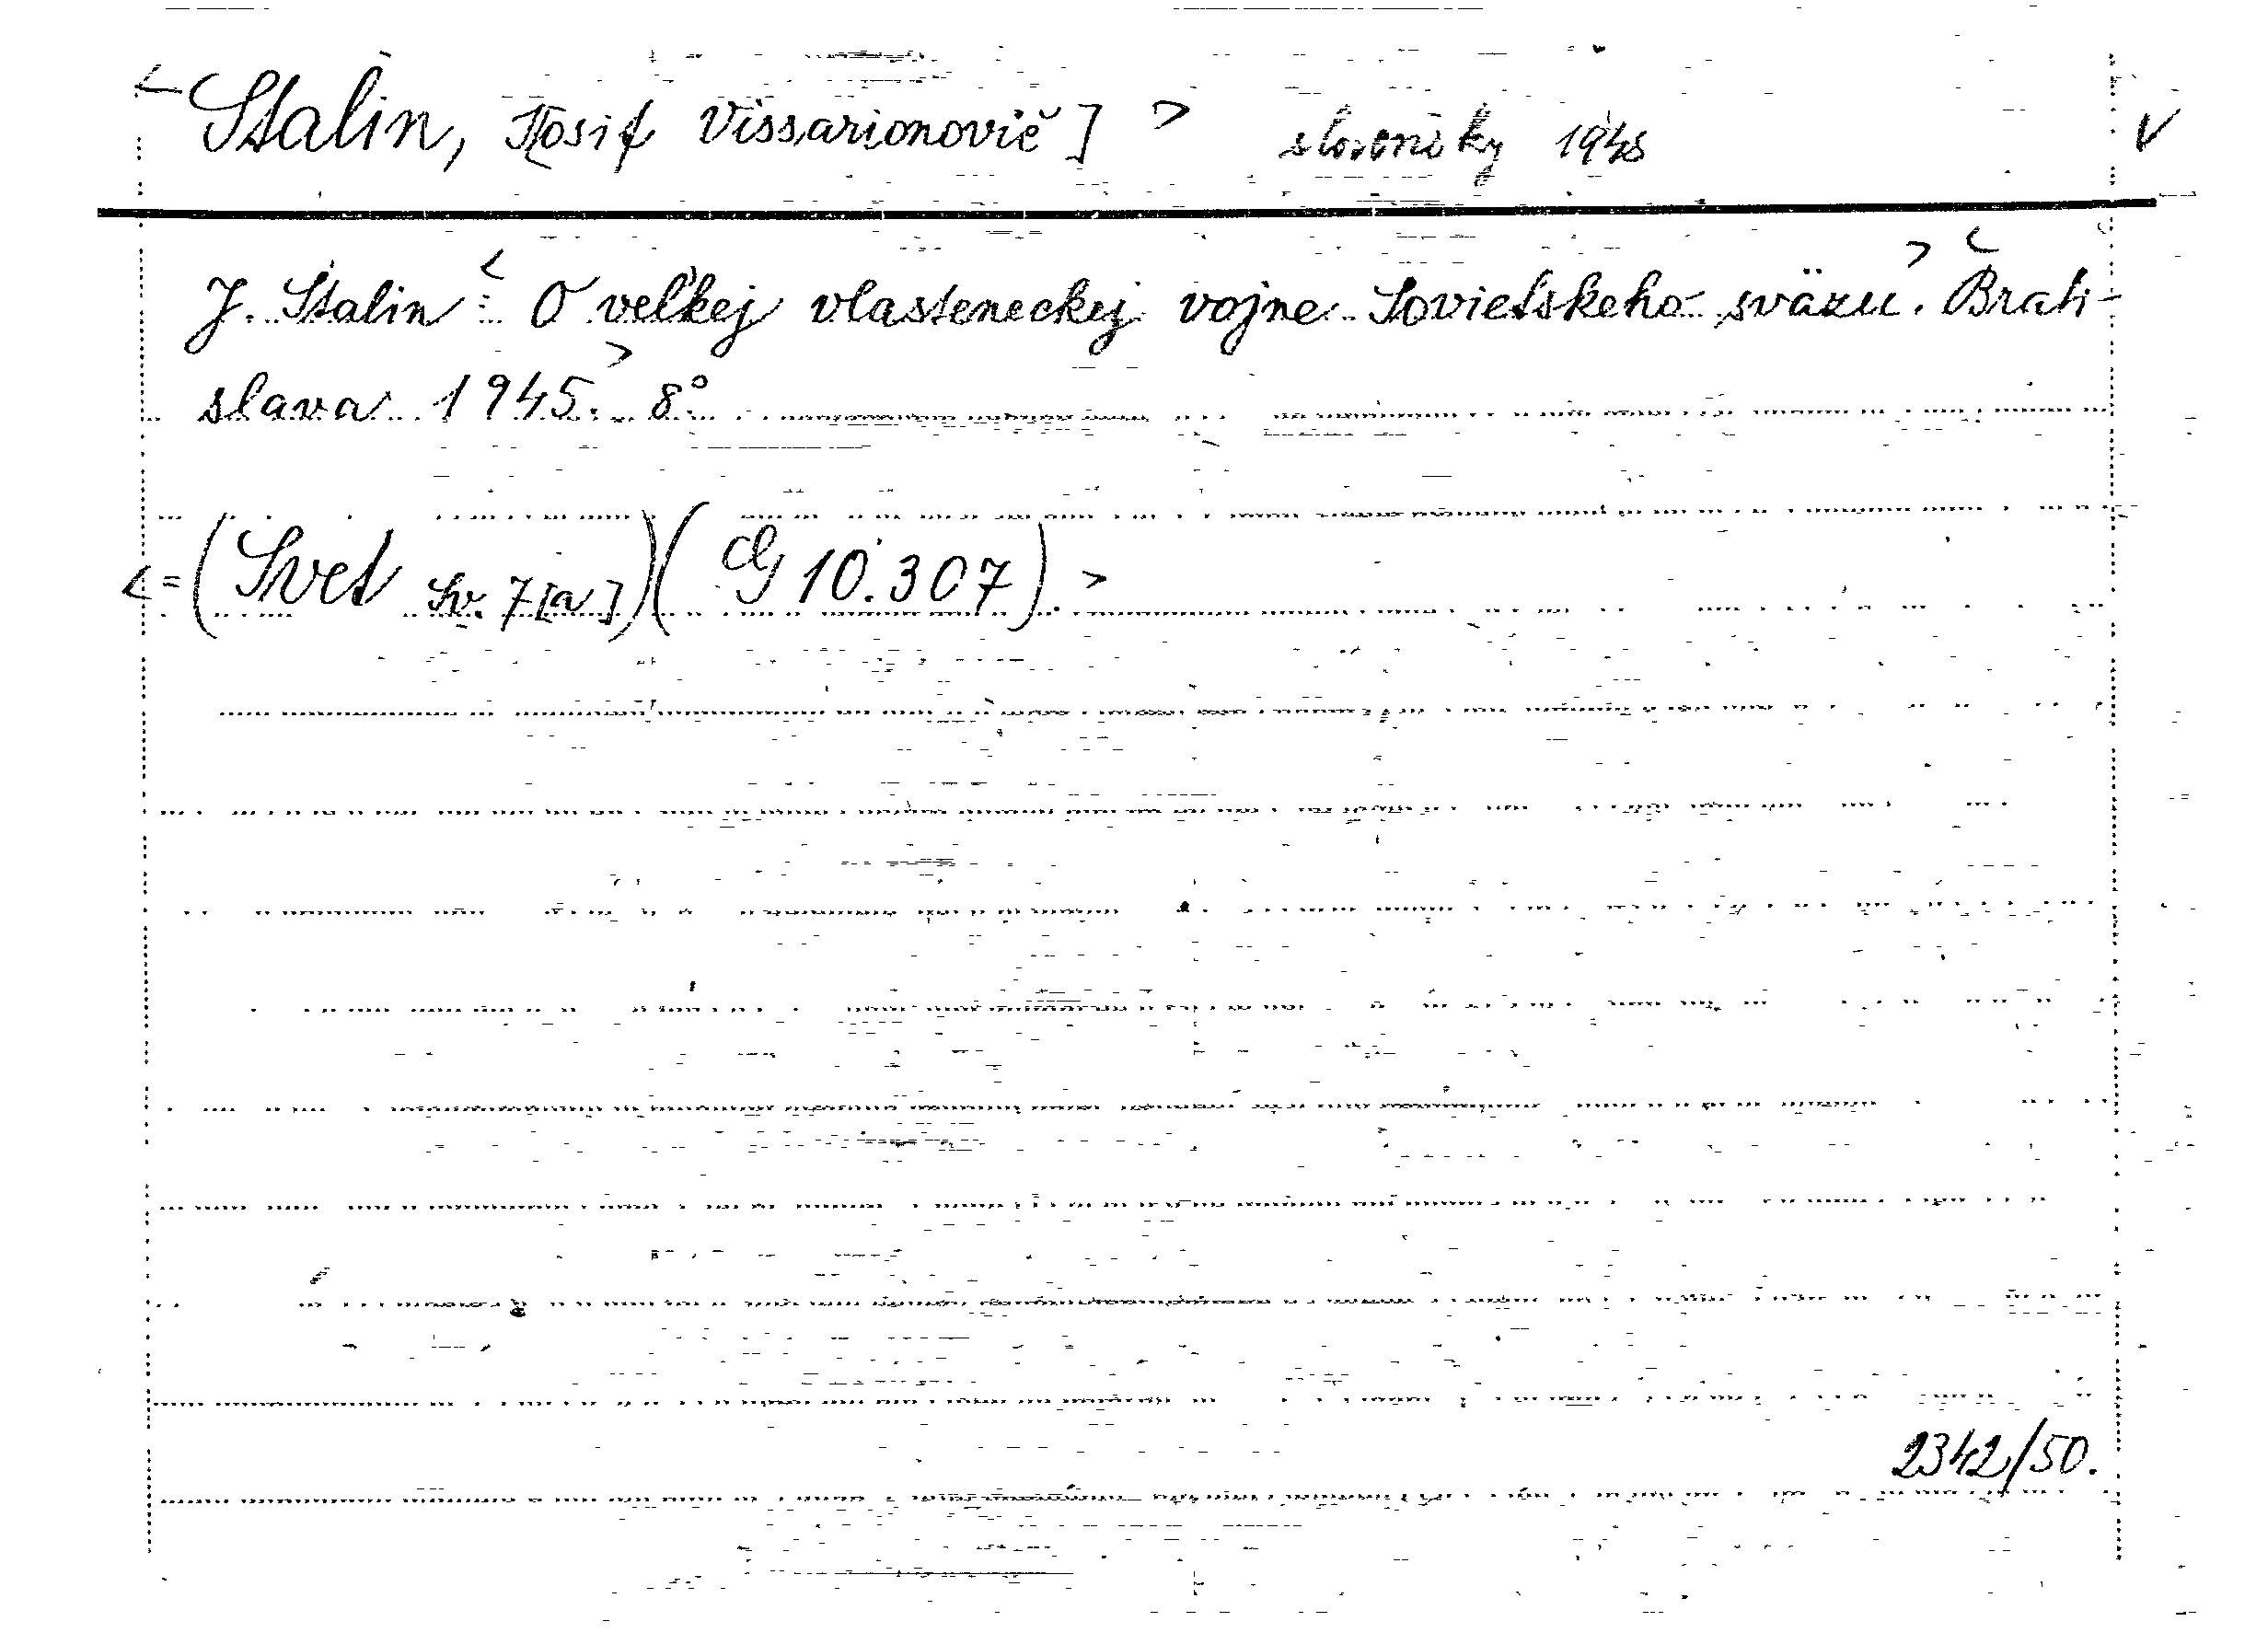 <Stalin, J[osif Vissarionovič]> slovensky 1945 V
J. Stalin <: O veľkej vlasteneckej vojne Sovietskeho sväzu.> <Brati-
slava 1945.> 8°.
<=(Svet Sv. 7[a])(Cg 10.307).>
2342/50.